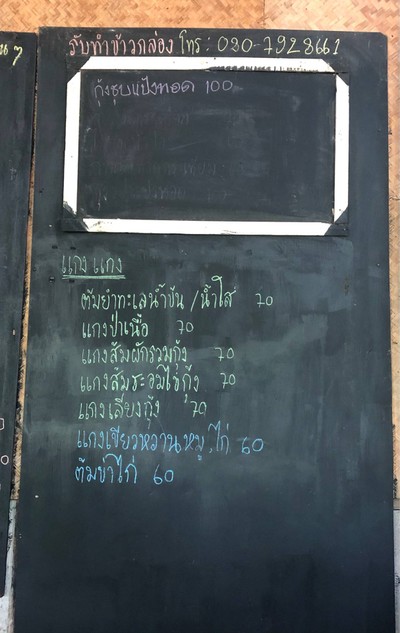 รับทำข้าวกล่อง โทร: 080-7928661
กุ้งชุบแป้งทอด 100
แกง แกง
ต้มยำทะเลน้ำข้น / น้ำใส 70
แกงป่าเนื้อ 70
แกงส้มผักรวมกุ้ง 70
แกงส้มชะอมไข่กุ้ง 70
แกงเลียงกุ้ง 70
แกงเขียวหวานหมู, ไก่ 60
ต้มข่าไก่ 60